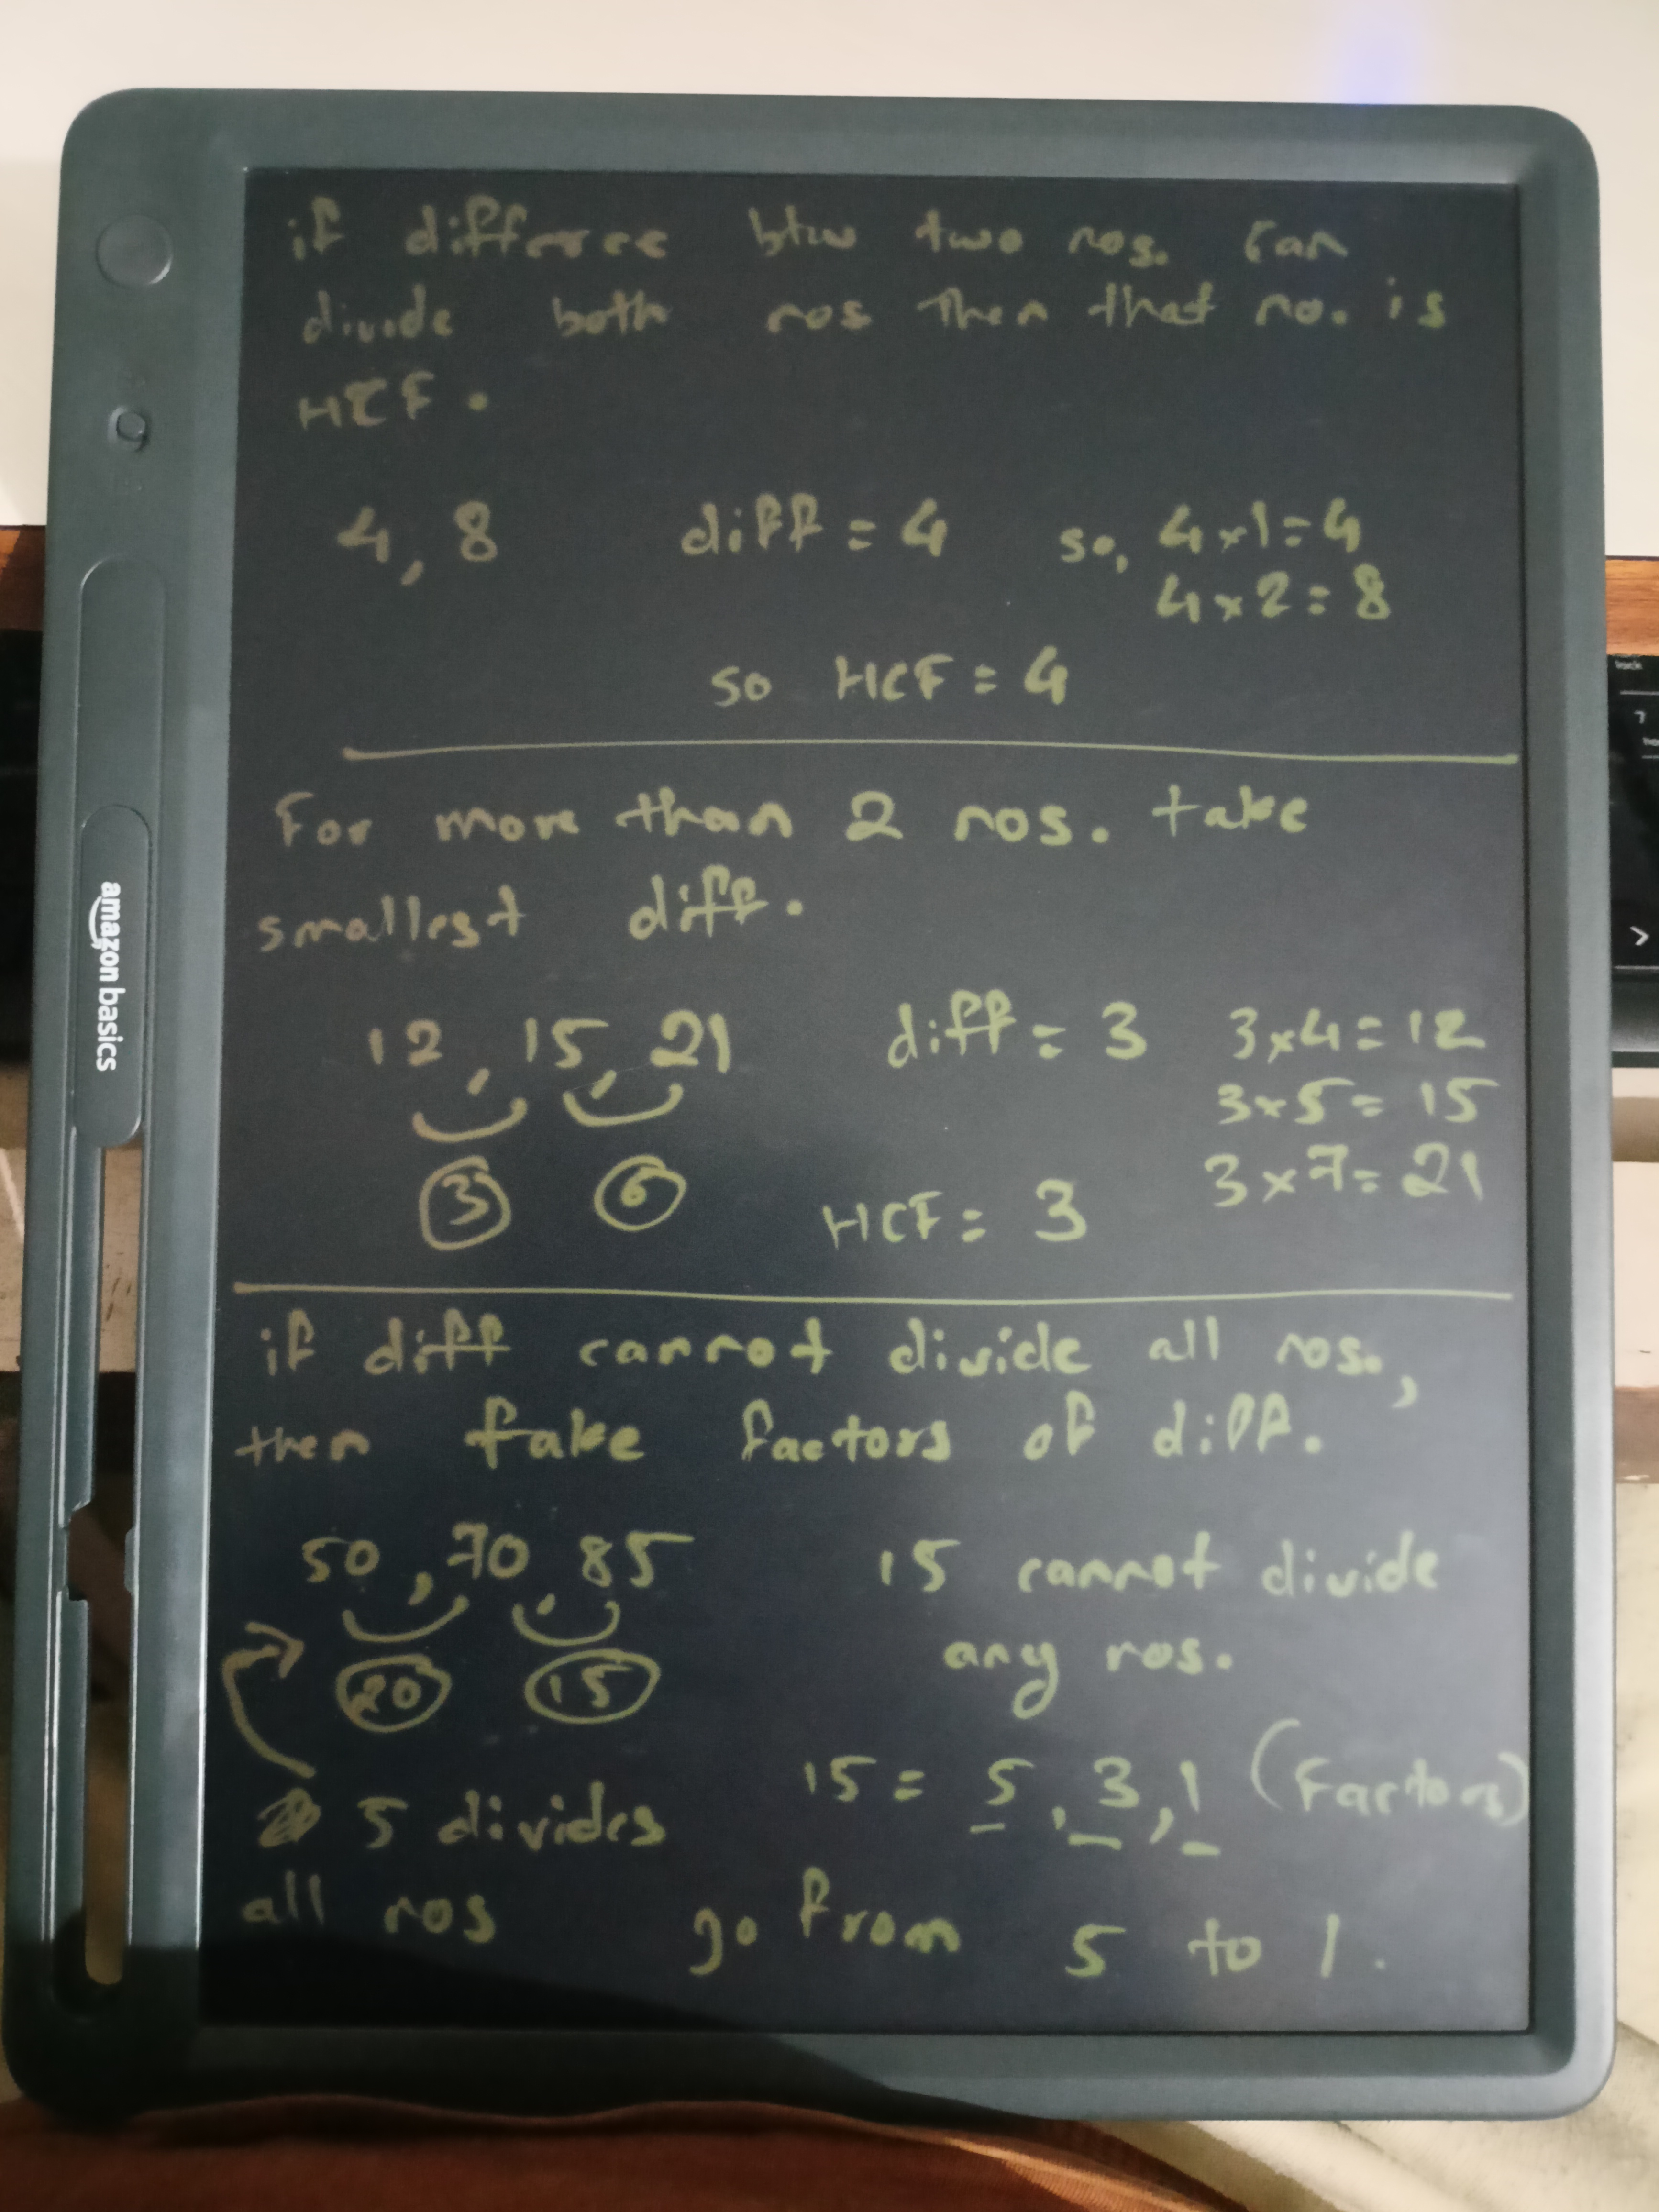 if differece btw two nos. can
divide both nos then that no. is
HCF.
4, 8 diff = 4 so, 4x1=4
4x2=8
so HCF = 4
For more than 2 nos. take
smallest diff.
12, 15, 21 diff = 3 3x4=12
3x5=15
3 6 HCF = 3 3x7=21
if diff cannot divide all nos.,
then take factors of diff.
50, 70, 85 15 cannot divide
20 15 any nos.
15 = 5, 3, 1 (Factors)
5 divides
all nos go from 5 to 1.
amazon basics